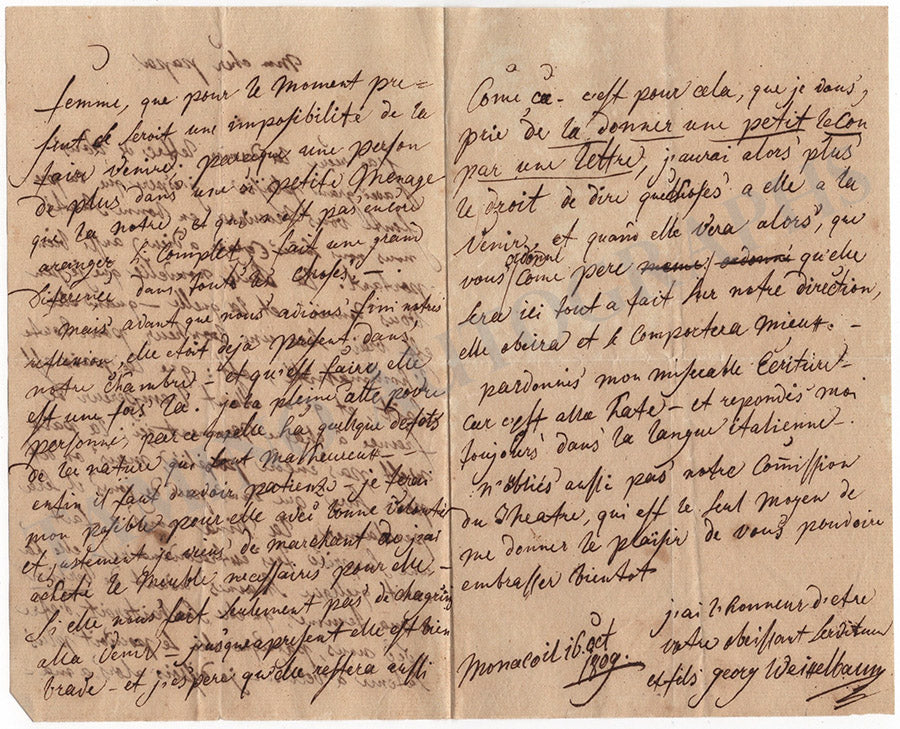 femme, que pour le moment pre=
sent ce seroit une impossibilité de la
faire venire, parceque une person
de plus dans une si petite menage
qui la notre, et qui n'est pas encore
arranger complet, fait une grand
diference dans touts les choses. —
mais avant que nous avions fini notre
reflexion, elle etoit deja present dans
notre chambre — et qu'est faire, elle
est une fois la. je la pleine cette povre
personne, parce qu'elle ha quelque defots
de la nature qui sont malheureux —
enfin il faut d'avoir patience — je ferai
mon posible pour elle avec bonne volonté
et justement je viens de marchant ou j'ai
acheté le meuble necessaires pour elle —
si elle nous fait seulement pas de chagrin
alla venir — jusqueapresent elle est bien
brave — et j'espere qu'elle restera aussi
Come ça — c'est pour cela, que je vous,
prie de la donner une petit leçon
par une lettre, j'aurai alors plus
le droit de dire quelchoses a elle a la
venir, et quand elle vera alors, que
vous ordoné come pere meme, ordonné qu'elle
sera ici tout a fait sur notre direction,
elle obeira et se comportera mieux. —
pardonnés mon miserable Ecriture —
car c'est alla hate — et repondés moi
toujours dans la langue italienne —
n'obliés aussi pas notre Comission
du Theatre, qui est le seul moyen de
me donner le plaisir de vous poudoire
embrasser bientot
j'ai l'honneur d'etre
votre obeissant serviteur
et fils georg Weixelbaum
Monaco il 16 oct
1809.